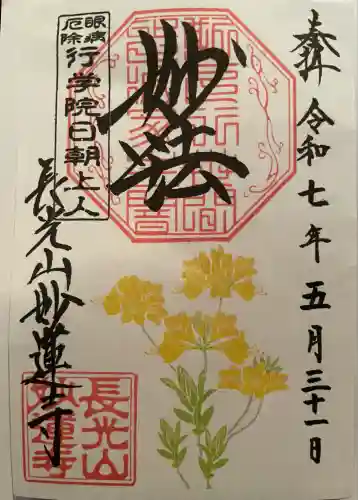 奉拝
令和七年五月三十一日
妙法
眼病
厄除
行学院日朝上人
長光山妙蓮寺
長光山
妙蓮寺